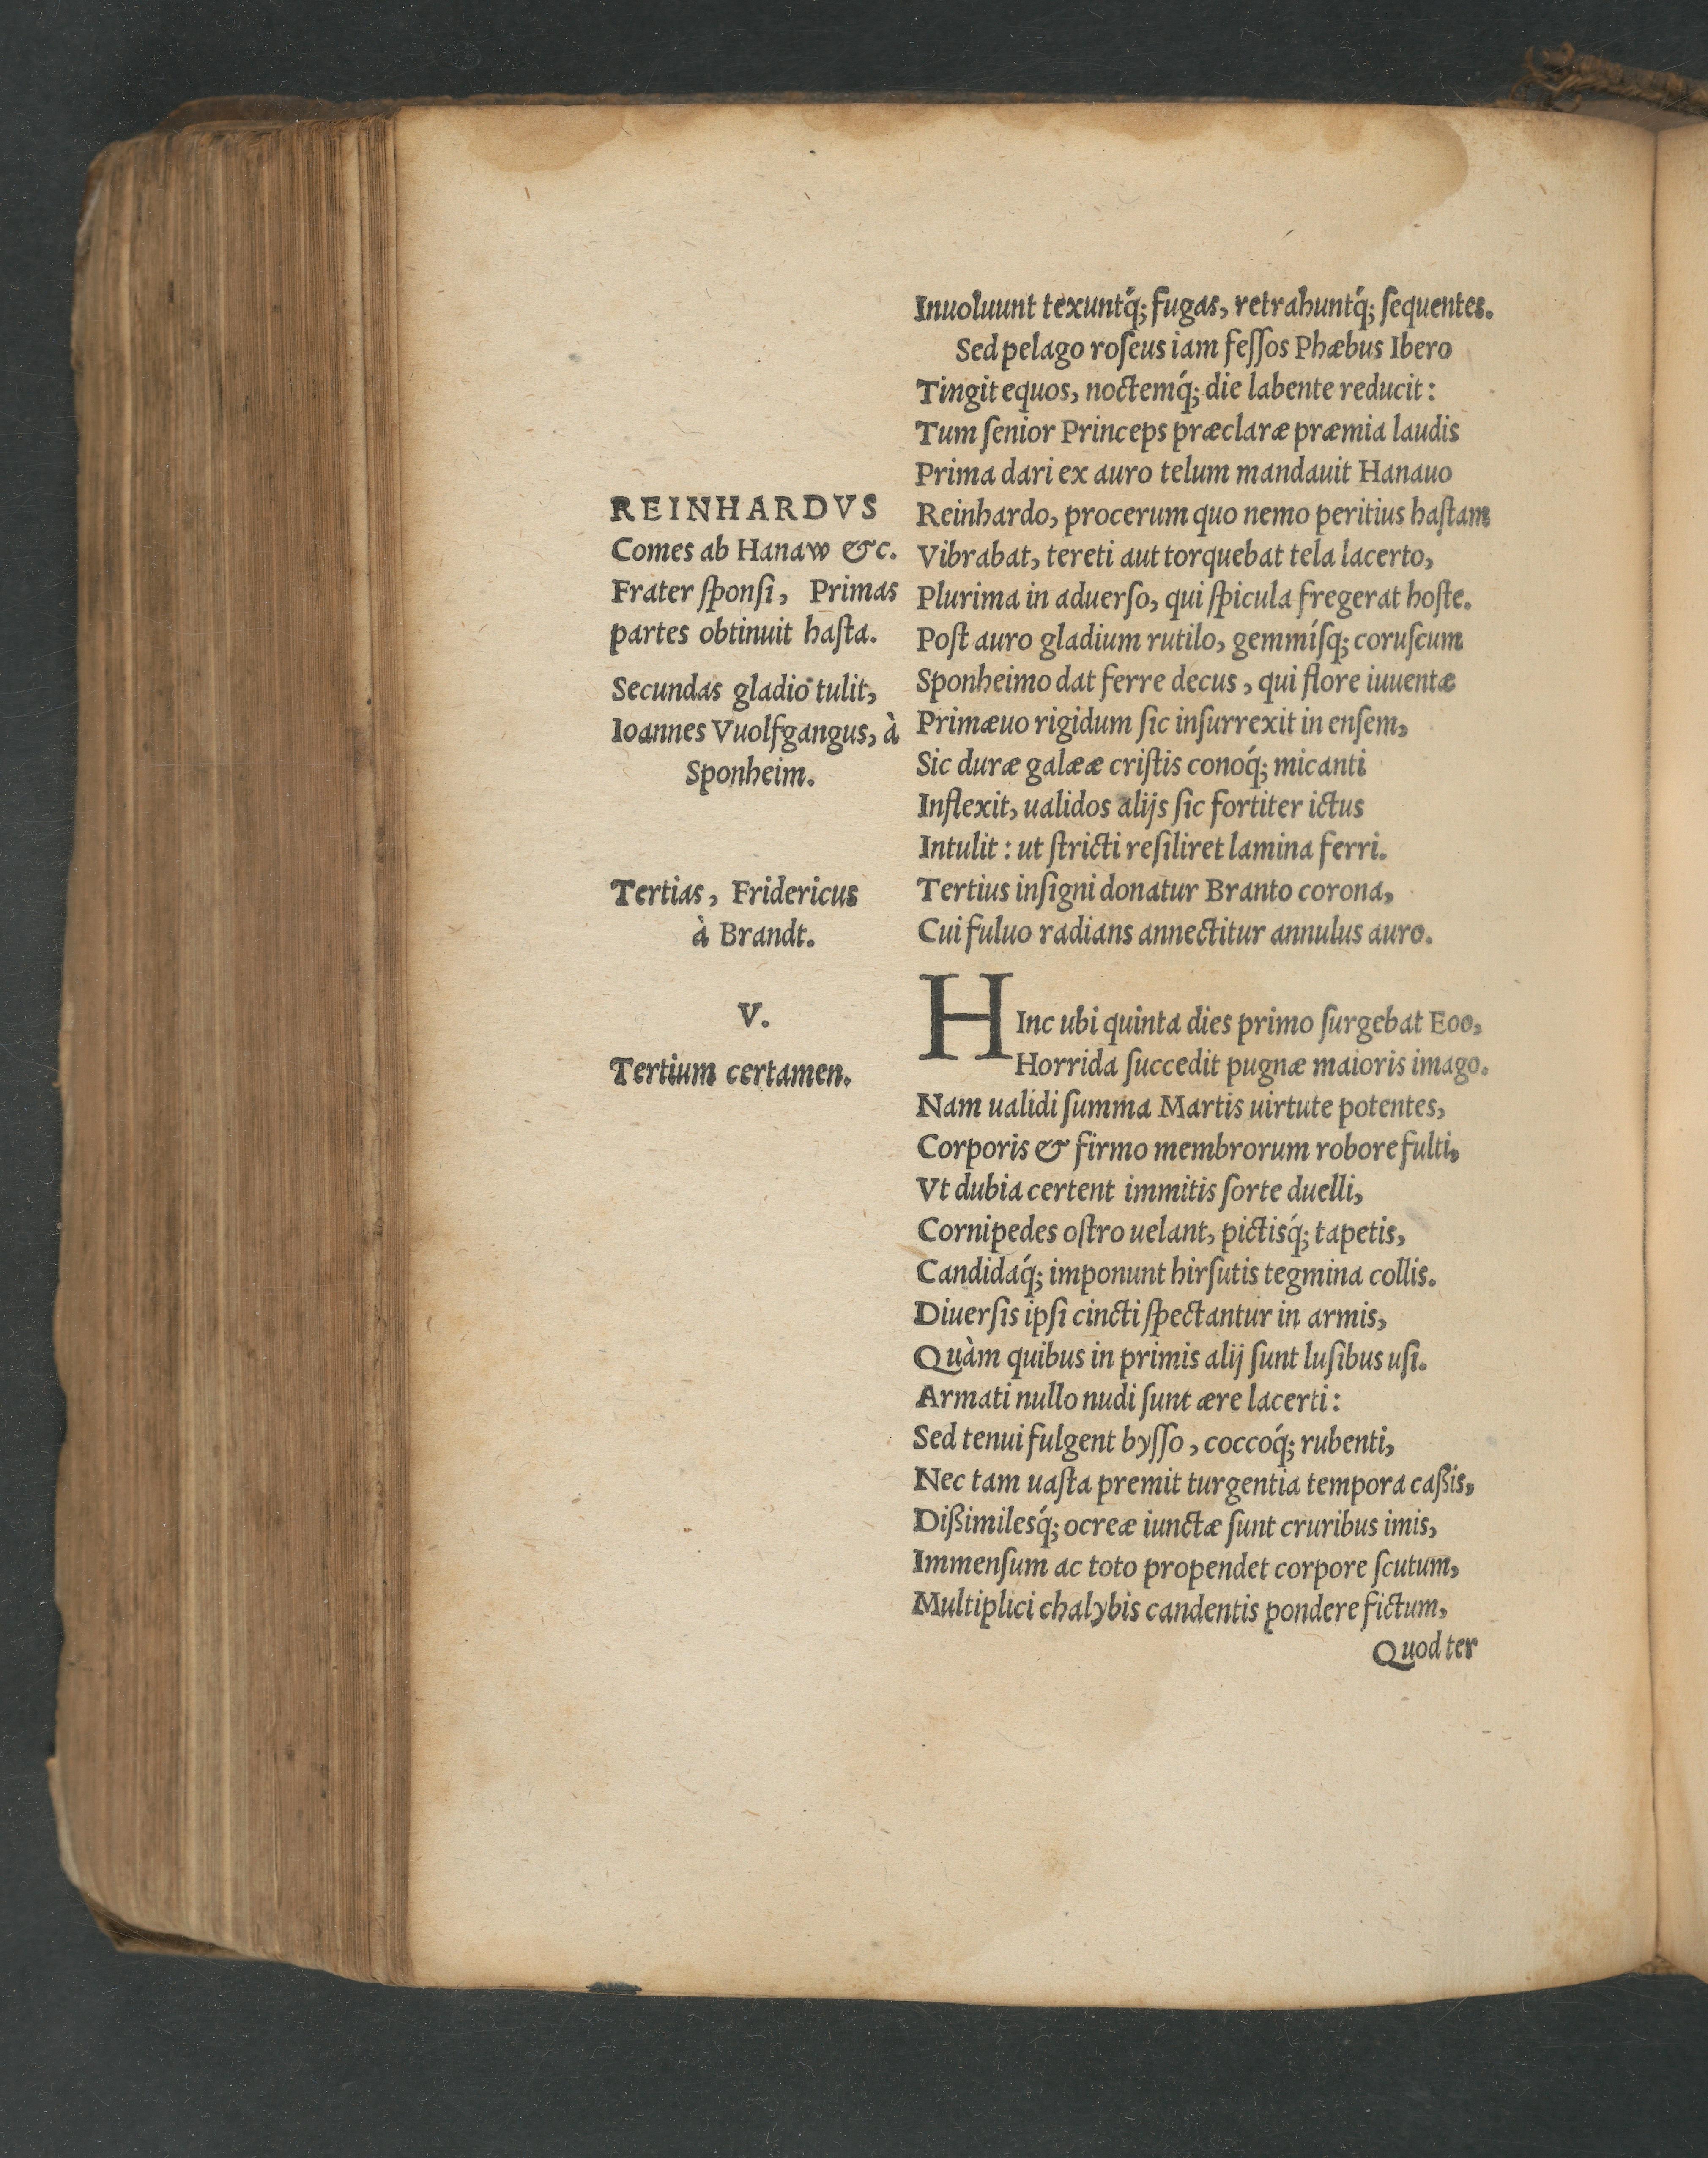 Inuoluunt texuntq́; fugas, retrahuntq́; ſequentes.
Sed pelago roſeus iam feſſos Phæbus Ibero
Tingit equos, noctemq́; die labente reducit:
Tum ſenior Princeps præclaræ præmia laudis
Prima dari ex auro telum mandauit Hanauo
Reinhardo, procerum quo nemo peritius haſtam
Vibrabat, tereti aut torquebat tela lacerto,
Plurima in aduerſo, qui ſpicula fregerat hoſte.
Poſt auro gladium rutilo, gemmíſq; coruſcum
Sponheimo dat ferre decus, qui flore iuuentæ
Primæuo rigidum ſic inſurrexit in enſem,
Sic duræ galææ criſtis conoq́; micanti
Inflexit, ualidos alijs ſic fortiter ictus
Intulit: ut ſtricti reſiliret lamina ferri.
Tertius inſigni donatur Branto corona,
Cui fuluo radians annectitur annulus auro.
REINHARDVS
Comes ab Hanaw &c.
Frater ſponſi, Primas
partes obtinuit haſta.
Secundas gladio tulit,
Ioannes Vuolfgangus, à
Sponheim.
Tertias, Fridericus
à Brandt.
V.
Tertium certamen.
HInc ubi quinta dies primo ſurgebat Eoo,
Horrida ſuccedit pugnæ maioris imago.
Nam ualidi ſumma Martis uirtute potentes,
Corporis & firmo membrorum robore fulti,
Vt dubia certent immitis ſorte duelli,
Cornipedes oſtro uelant, pictisq́; tapetis,
Candidaq́; imponunt hirſutis tegmina collis.
Diuerſis ipſi cincti ſpectantur in armis,
Quàm quibus in primis alij ſunt luſibus uſi.
Armati nullo nudi ſunt ære lacerti:
Sed tenui fulgent byſſo, coccoq́; rubenti,
Nec tam uaſta premit turgentia tempora caßis,
Dißimilesq́; ocreæ iunctæ ſunt cruribus imis,
Immenſum ac toto propendet corpore ſcutum,
Multiplici chalybis candentis pondere fictum,
Quod ter